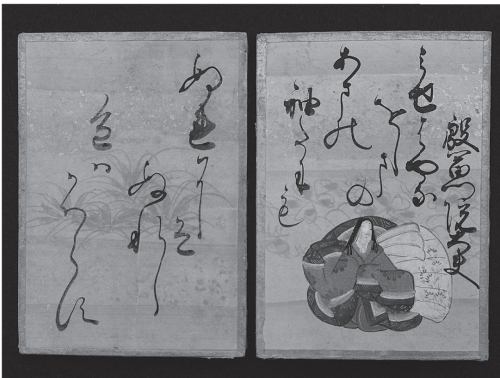 殷富門院大輔
みせはやな
をしまの
あまの
袖たにも
ぬれにそ
ぬれし
色は
かはらす